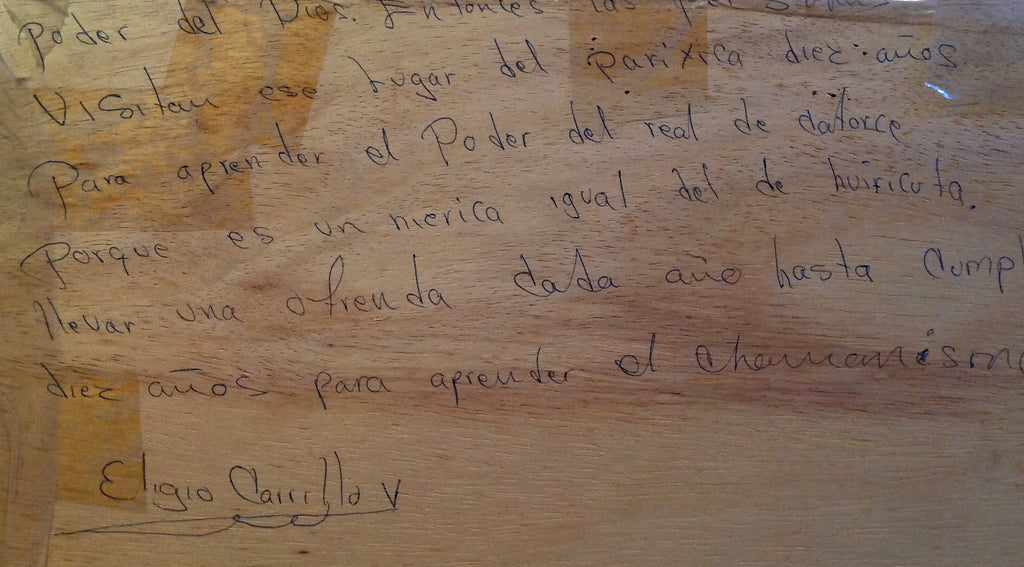 Poder del Dios. Entonces las personas
Visitan ese lugar del parixica diez años
Para aprender el Poder del real de catorce
Porque es un merica igual del de huiricuta.
llevar una ofrenda cada año hasta Cumpl
diez años para aprender el chamanismo
Eligio Carrillo V